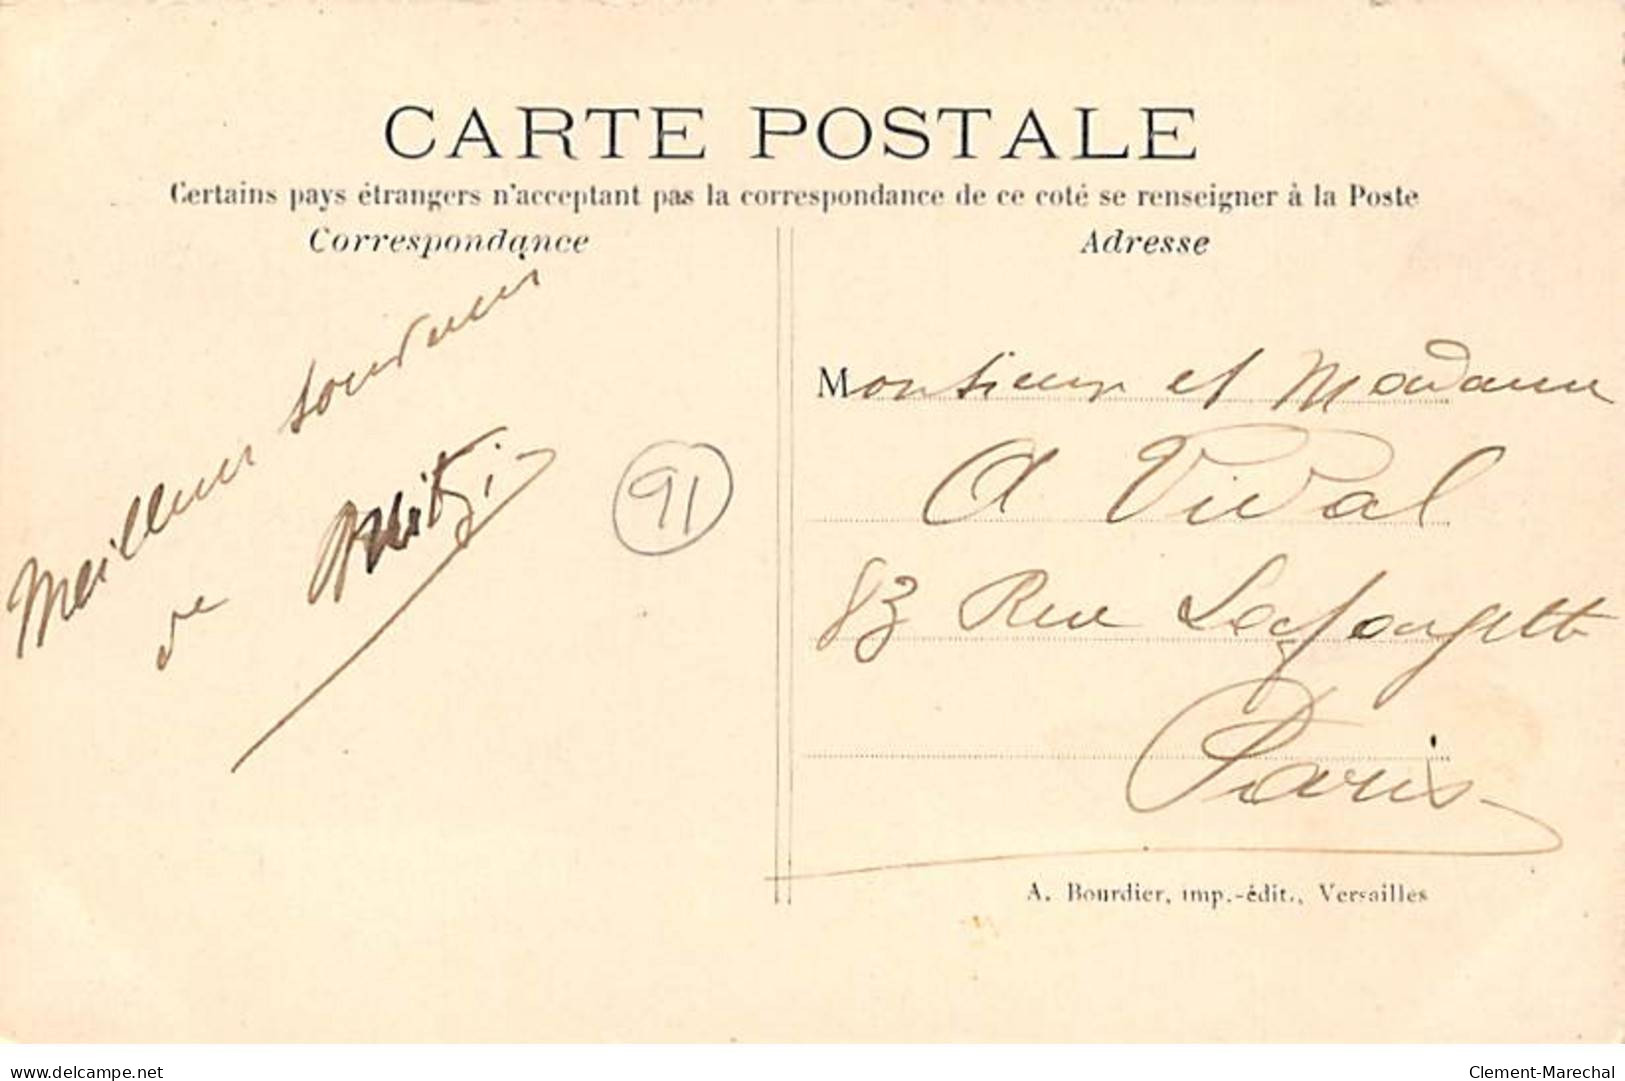 CARTE POSTALE
Certains pays étrangers n'acceptant pas la correspondance de ce coté se renseigner à la Poste
Correspondance
Adresse
Meilleurs souvenirs
de Mitzi
91
Monsieur et Madame
A Vidal
83 Rue Lafayette
Paris
A. Bourdier, imp.-édit., Versailles
delcampe.net
Clement-Marechal